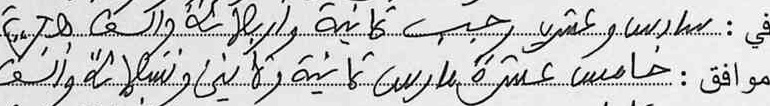 في : سادس وعشرين رجب ثمانية وأربعمائة وألف هجرية
موافق : خامس عشرة مارس ثمانية وثمانين وتسعمائة وألف